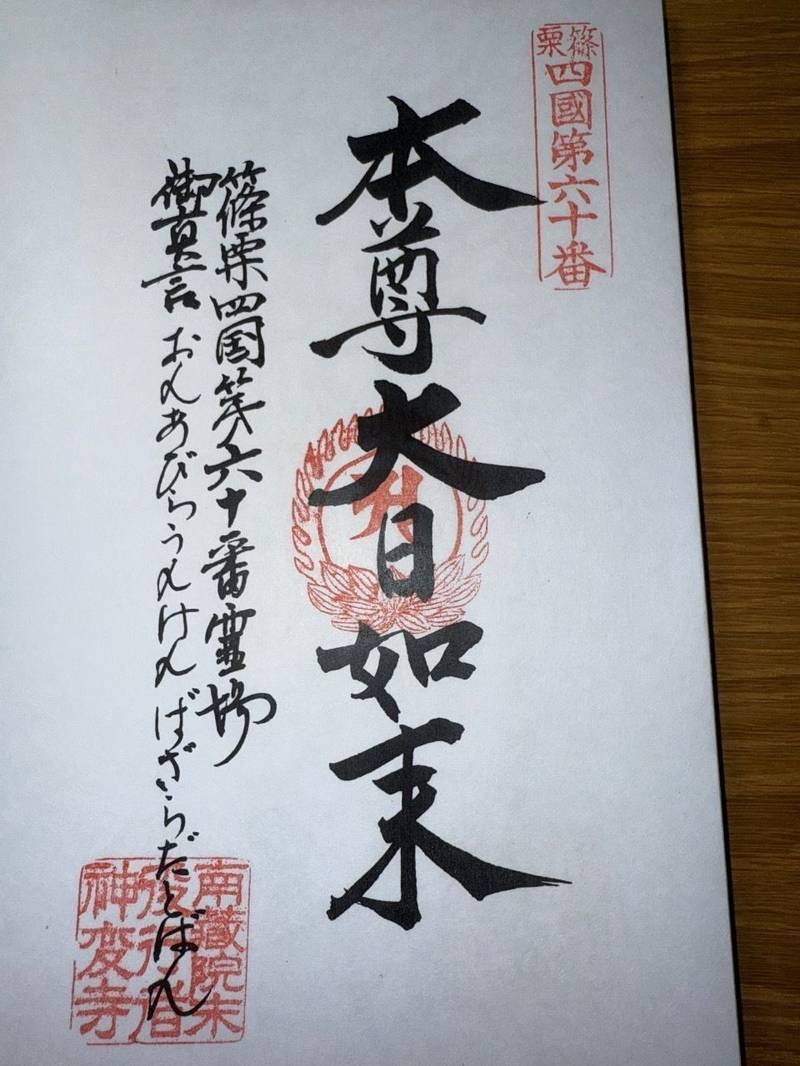 篠栗四國第六十番
本尊大日如来
篠栗四国第六十番霊場
御真言 おんあびらうんけんばざらだとばん
南藏院末
役行者
神変寺